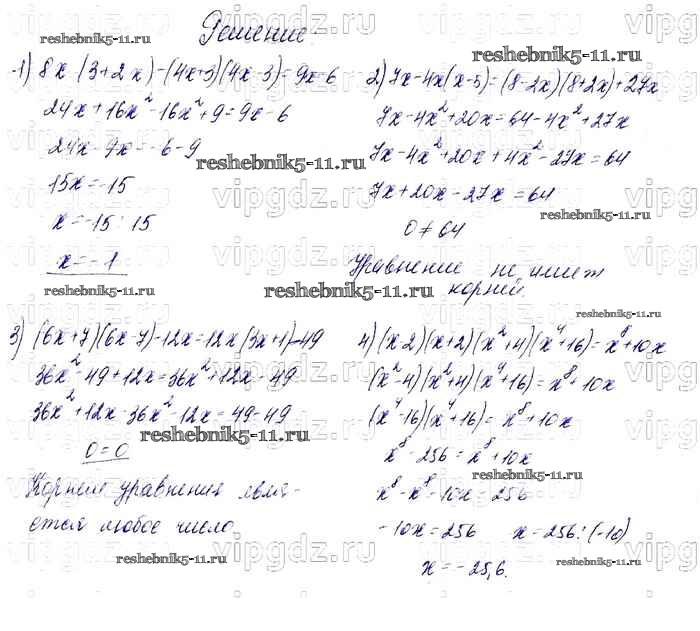 Решение
1) 8x (3+2x)-(4x+3)(4x-3)=9x-6
24x+16x²-16x²+9=9x-6
24x-9x=-6-9
15x=-15
x=-15:15
x=-1
2) 7x-4x(x-5)=(8-2x)(8+2x)+27x
7x-4x²+20x=64-4x²+27x
7x-4x²+20x+4x²-27x=64
7x+20x-27x=64
0≠64
Уравнение не имеет
корней.
3) (6x+7)(6x-7)-12x=12x(3x+1)-49
36x²-49+12x=36x²+12x-49
36x²+12x-36x²-12x=49-49
0=0
Корнем уравнения явля-
ется любое число
4) (x-2)(x+2)(x²+4)(x⁴+16)=x⁸+10x
(x²-4)(x²+4)(x⁴+16)=x⁸+10x
(x⁴-16)(x⁴+16)=x⁸+10x
x⁸-256=x⁸+10x
x⁸-x⁸-10x=256
-10x=256 x=256:(-10)
x=-25,6.
reshebnik5-11.ru
vipgdz.ru